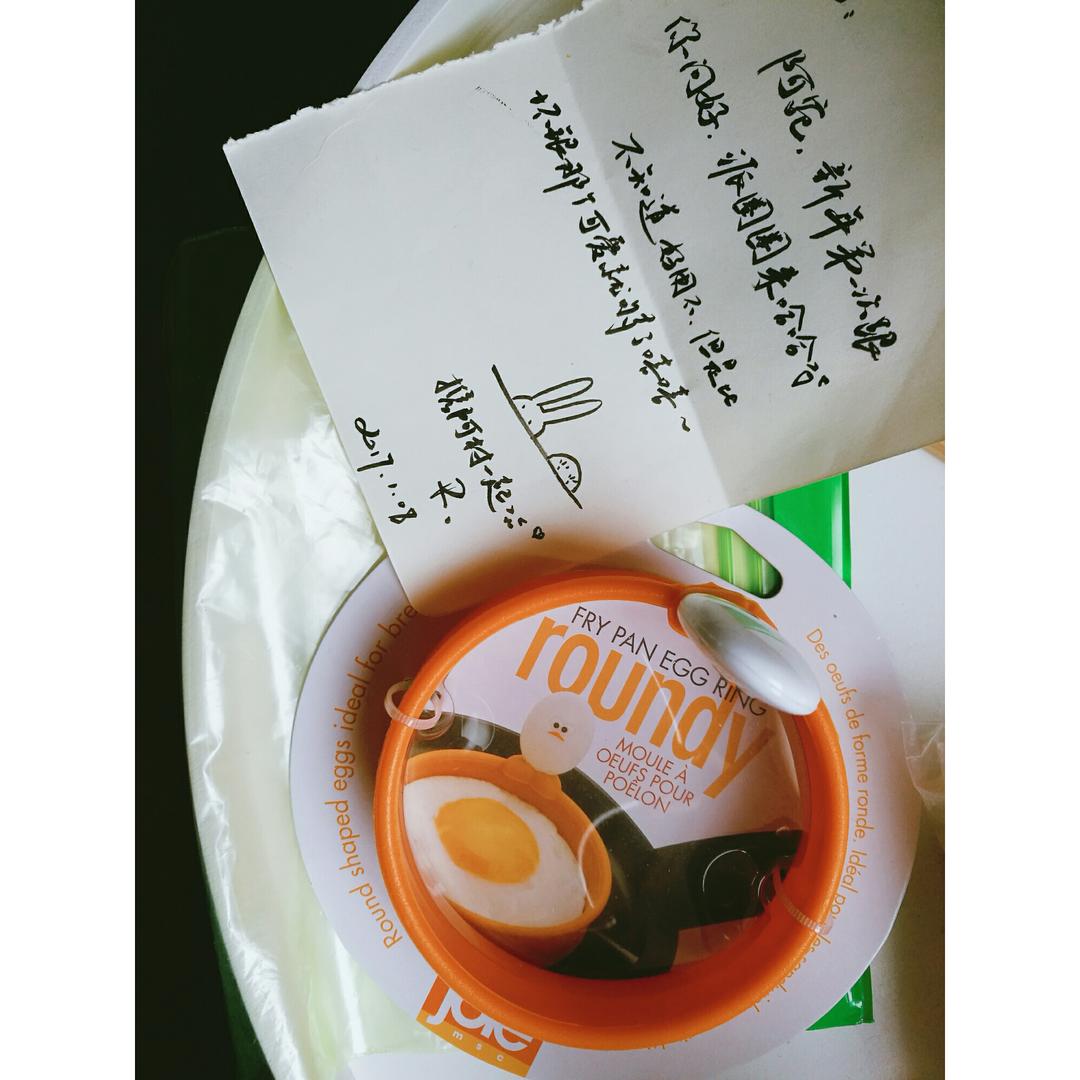 阿宛，新年第一次跟
你问好，派圆圆来哈哈
不知道好用不，但是
它很那个可爱就对了嘻嘻~
阿村一起
2017.1.08
FRY PAN EGG RING
roundy
MOULE À
OEUFS POUR
POÊLON
Round shaped eggs ideal for bre
Des oeufs de forme ronde. Idéal po
joie
msc